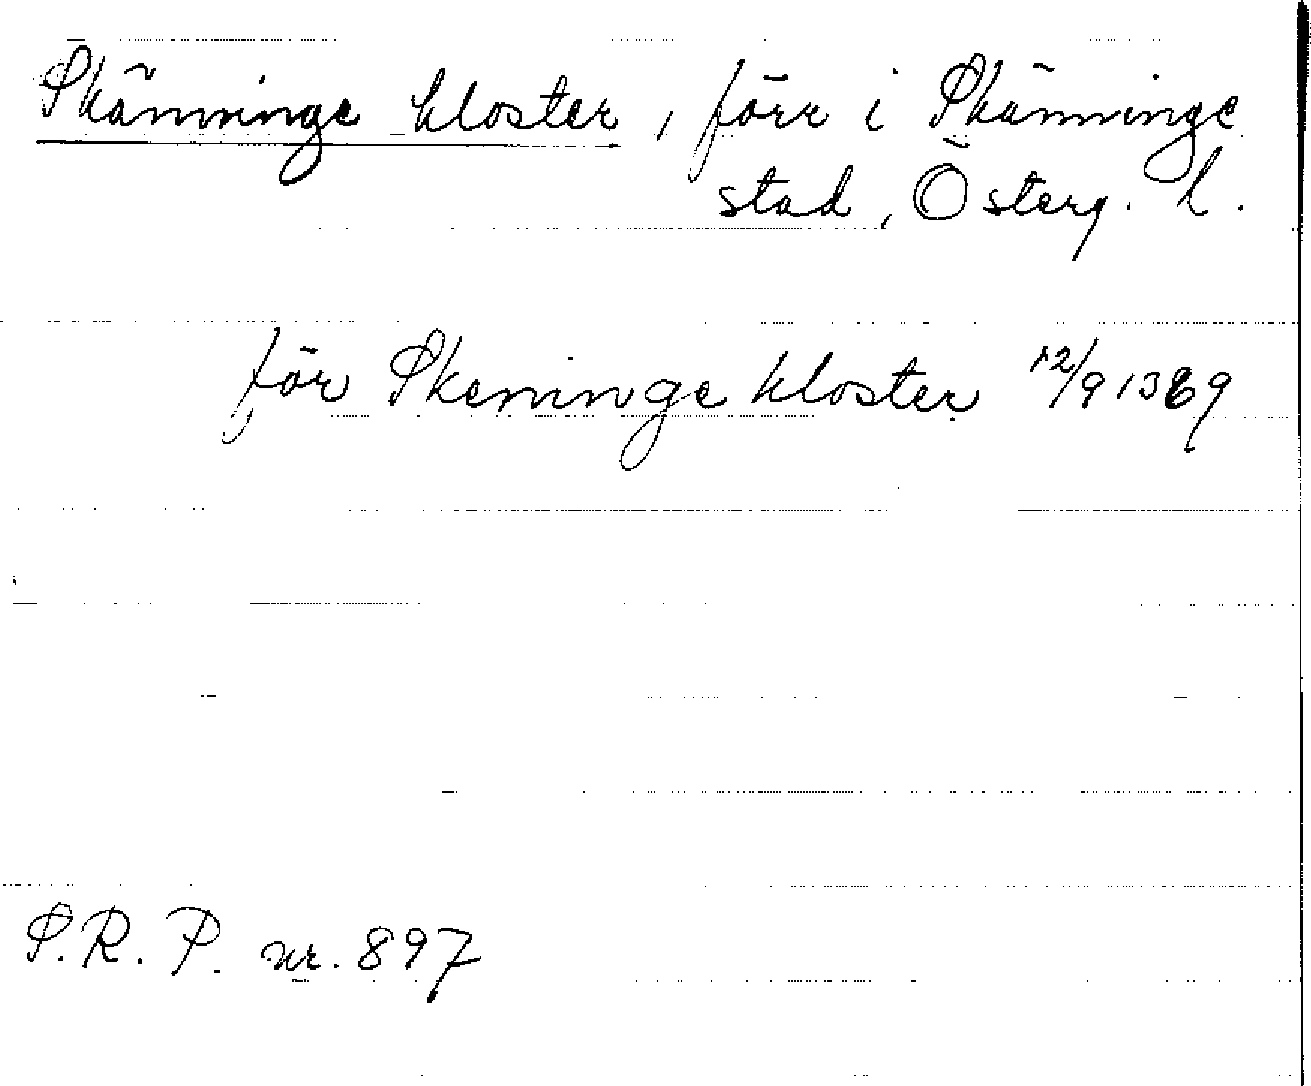 Skänninge kloster, förr i Skänninge
stad, Österg. l.
för Skeninge kloster 12/9 1369
S.R.P. nr. 897